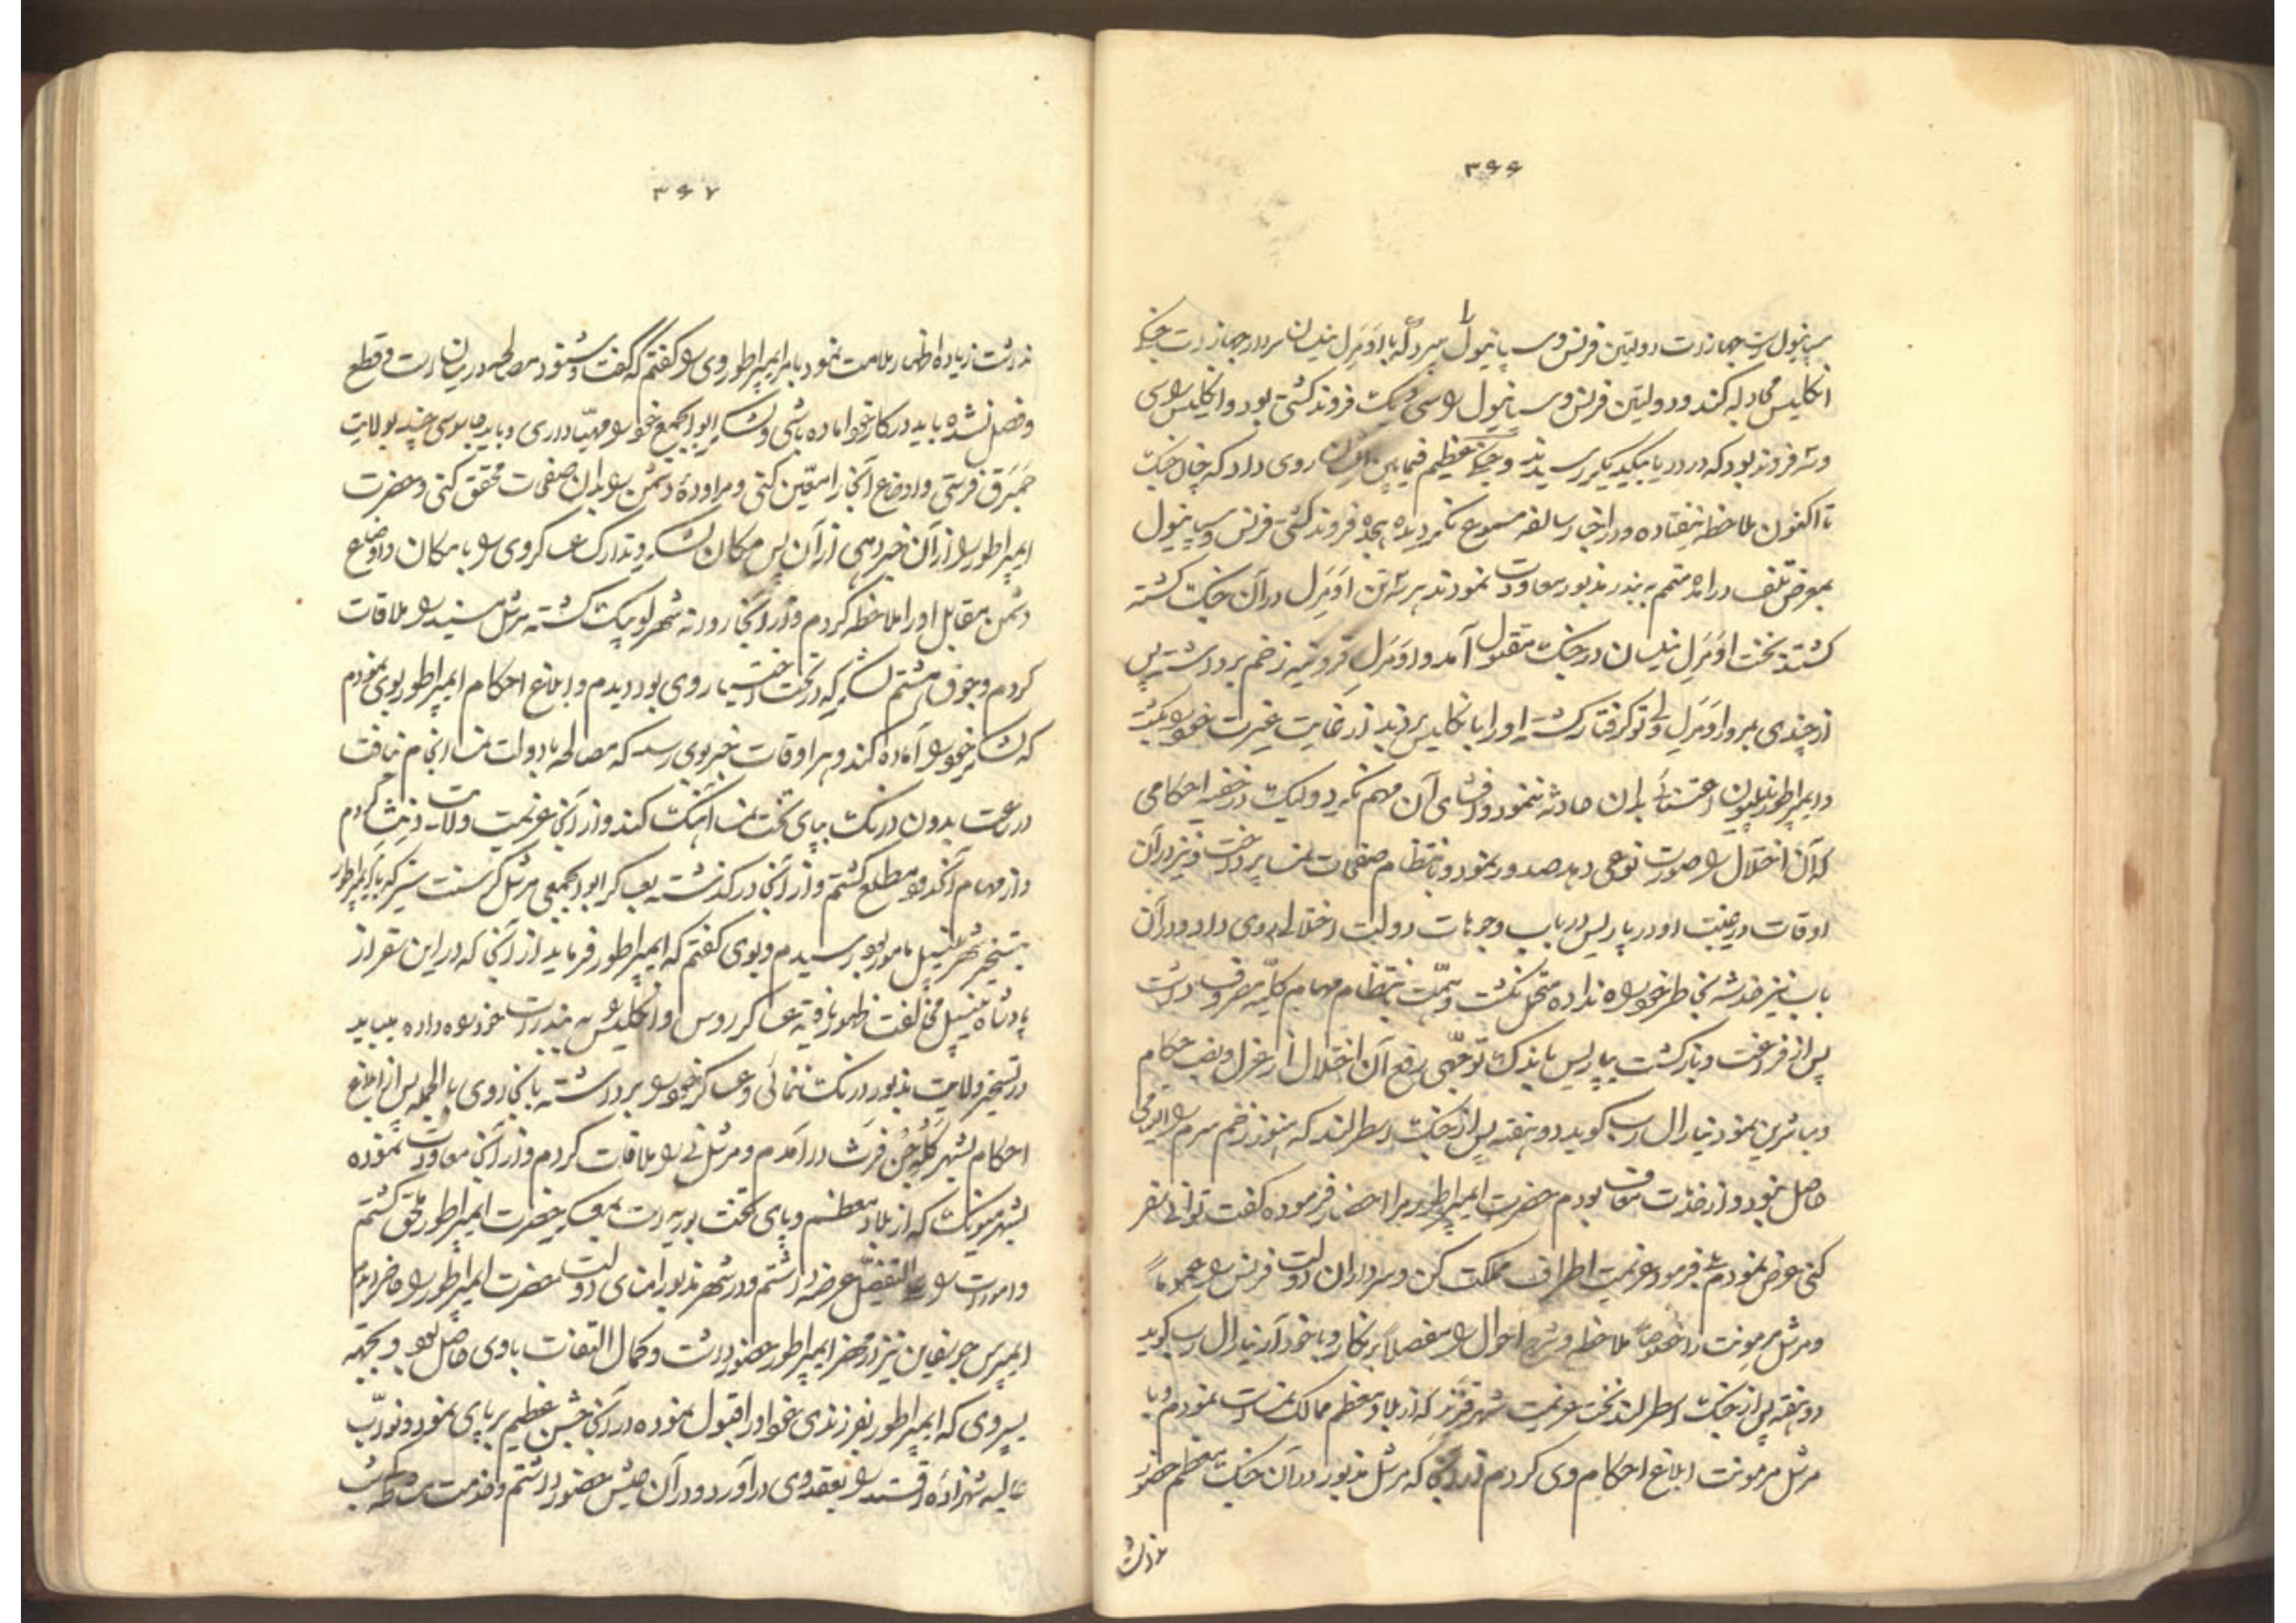 ۳۶۶
سپانیول است جهازات دولتین فرنس و سپانیول را سپرد که با اَدمَرَل نیلسان سردار جهازات جنگی
انکلیس مجادله کند و دولتین فرنس و سپانیول را سی و یک فروند کشتی بود و انکلیس را سی
و سه فروند بود که در دریا بیکدیکر رسیدند و جنگی عظیم فیمابین ایشان روی داد که چنان جنگ
تا اکنون ملاحظه نیفتاده و در اخبار سالفه مسموع نکردیده هجده فروند کشتی فرنس و سپانیول
بمعرض تلف درآمد متمم به بندر مذبور معاودت نمودند هر سه تن اَدمَرَل در آن جنگ کشته
کشتند نخست اَدمَرَل نیلسان در جنگ مقتول آمد و اَدمَرَل زخم برداشت پس
از چندی بمرد و اَدمَرَل کرفتار کشته او را بانکلیس بردند از غایت غیرت خود را بکشت
و ایمپراطور ناپلیون اعتنائی بدان حادثه ننمود و افشای آن مهم نکرد ولیکن در خفیه احکامی
که آن اختلال را صورت نوعی دهد صدور نمود و بانتظام صفحات نمسا پرداخت و نیز در آن
اوقات در غیبت او در پاریس در باب وجوهات دولت اختلالی روی داد و در آن
باب نیز خدشه بخاطر خود راه نداده متحمل نکشت و همّت بانتظام مهام کلیّه مصروف داشت
پس از فراغت و بازکشت بپاریس باندک توجّهی برفع آن اختلال از عزل و نصب حکام
و مباشرین نمود ژنارال رپ کوید دو هفته پس از جنگ اسطرلند که هنوز زخم سرم را التیامی
حاصل نبود و از خدمات معاف بودم حضرت ایمپراطور مرا احضار فرموده کفت توانی سفر
کنی عرض نمودم بلی فرمود عزیمت اطراف مملکت کن و سرداران دولت فرنس را عموماً
و مرشل مرمونت را خصوصاً ملاحظه و شرح احوال را مفصلاً برنکار و با خود آر ژنارال رپ کوید
دو هفته پس از جنگ اسطرلند نخست عزیمت شهر که از بلاد معظم ممالک نمسا است نمودم و با
مرشل مرمونت ابلاغ احکام وی کردم از آنجا که مرشل مذبور در آن جنگ معظم حضور
نداشت
۳۶۷
نداشت زیاده اظهار ملامت نمود بامر ایمپراطور وی را کفتم که کفت و شنود مصالحه در میان است و قطع
و فصل نشده باید در کار خود آماده باشی و لشکر ابوابجمعی خود را مهیّا داری و باید جاسوسی چند بولایت
فرستی و اوضاع آنجا را معیّن کنی و مراوده دشمن را بدان صفحات محقق کنی و حضرت
ایمپراطور را از آن خبر دهی از آن پس مکان لشکر و تدارک عساکر وی را با مکان و اوضاع
دشمن مقابل او را ملاحظه کردم و از آنجا روانه شهر کشته مرشل را ملاقات
کردم و جوق هشتم لشکر که در تحت اختیار وی بود دیدم و ابلاغ احکام ایمپراطور بوی نمودم
که لشکر خود را آماده کند و هر اوقات خبر بوی رسد که مصالحه با دولت نمسا انجام نیافت
در ساعت بدون درنک بپای تخت نمسا آهنک کند و از آنجا عزیمت ولایت کردم
و از مهام مطلع کشتم و از آنجا درکذشته بعساکر ابوابجمعی مرشل سنت سیر که بامر ایمپراطور
بتسخیر شهر نیپل مامور بود رسیدم و بوی کفتم که ایمپراطور فرماید از آنجا که در این سفر از
پادشاه نیپل مخالفت ظهور یافته عساکر روس و انکلیس را به بندرات خود راه داده میباید
در تسخیر ولایت مذبور درنک ننمائی و عساکر خود را برداشته بآنجا روی بالجمله پس از ابلاغ
احکام بشهر درآمدم و مرشل نی را ملاقات کردم و از آنجا معاودت نموده
بشهر میونک که از بلاد معظم و پای تخت است بموکب حضرت ایمپراطور ملحق کشتم
و امورات را علی التفصیل عرضه داشتم و در شهر مذبور امنای دولت حضرت ایمپراطور را حاضر دیدم
ایمپرس جوزیفاین نیز در محضر ایمپراطور حضور داشت و کمال التفات با وی حاصل بود و بجهة
پسر وی که ایمپراطور بفرزندی خود او را قبول نموده در آنجا جشن عظیم بر پای نمود و نوّاب
عالیه شهزاده را بعقد وی درآورد و در آن جشن حضور داشتم و خدمت